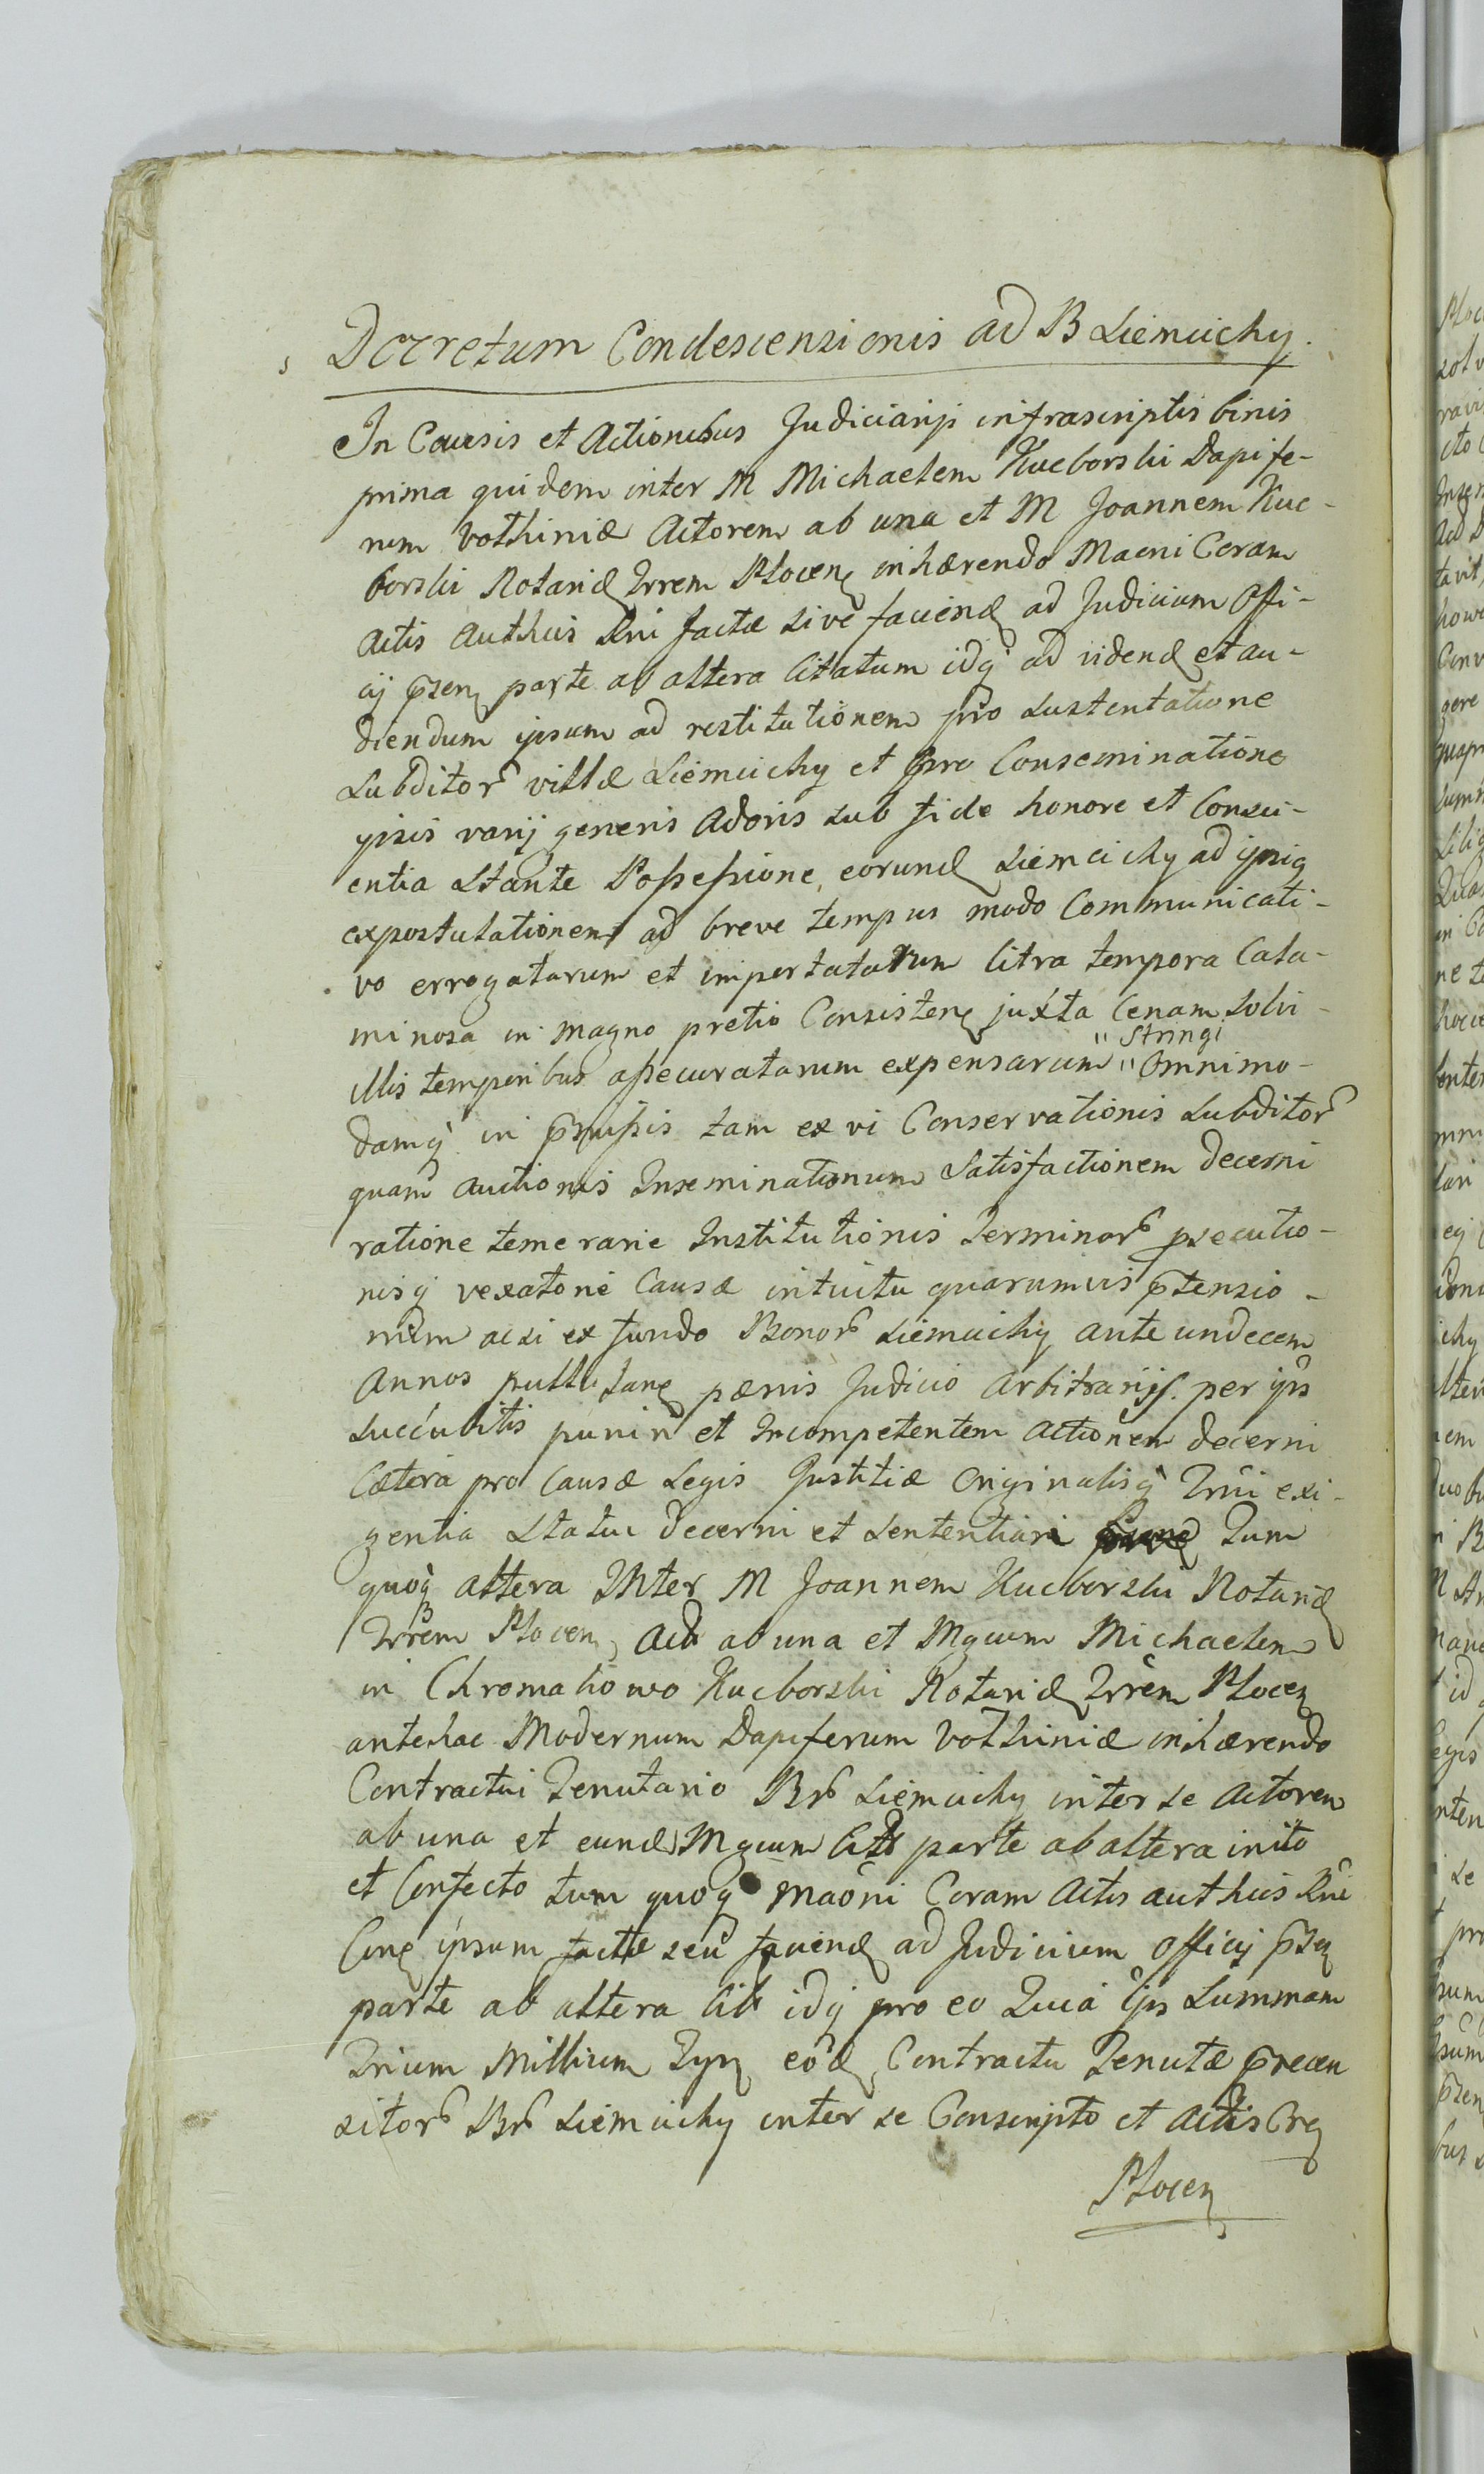 Decretum Condescensionis ad B Siemiichy.
In Causis et Actionibus Judiciarijs infrascriptis binis
prima quidem inter M Michaelem Kucborski Dapife-
rum Vothiniæ Actorem ab una et M Joannem Kuc-
borski Notariũ Trrem Plocen inhærendo Maoni Coram
Actis Authcis Rni factæ sive faciend ad Judicium Offi-
cij p̃sen parte ab altera Citatum idq̃ ad videnđ et au-
diendum ipsum ad restitutionem pro sustentatione
Subditor villæ Siemiichy et pro Conseminatione
ipsis varij generis Adoris sub fide honore et Consci-
entia Stante Possessione eorund Siemcichy ad ipsiq
expostulationem ad breve tempus modo Communicati-
vo errogatarum et impertatarum Citra tempora Cala-
minosa in magno pretio Consisten juxta Cenam Solvi
"Stringi
illis temporibus assecuratarum expensarum " Omnimo-
damq̃ in p̃missis tam ex vi Conservationis Subditor
quam Auctionis Inseminationum Satisfactionem decerni
ratione temerarie Institutionis Terminor psecutio-
nisq̃ vexatorie Causæ intuitu quarumvis p̃tensio-
num acsi ex fundo Bonor Siemiichy ante undecem
Annos pullutanq pænis Judicio Arbitrarijs per ips
Succubitis puniri et Incompetentem Actionem decerni
Cætera pro Causæ Legis Justitiæ Originalisq̃ Trni exi-
gentia Statui decerni et Sententiari Tum
quoq̃ altera Inter M Joannem Kucborski Notariũ
Trrem Plocen Act ab una et Mgcum Michaelem
in Chromakowo Kucborski Notariũ Trrem Plocen
antehac Modernum Dapiferum Vothiniæ inhærendo
Contractui Tenutario Br Siemiichy inter se Actorem
ab una et eund Mgcum Citt parte ab altera inito
et Confecto tum quoq̃ Maoni Coram Actis Authcis Rni
Conq ipsum factæ seu faciend ad Judicium Officij p̃sen
parte ab altera Cit idq̃ pro eo Quia ips Summam
Trium Millium Tyn eod Contractu Tenutæ p̃recen
sitor Br Siemiichy inter se Conscripto et Actis Cre
Plocen